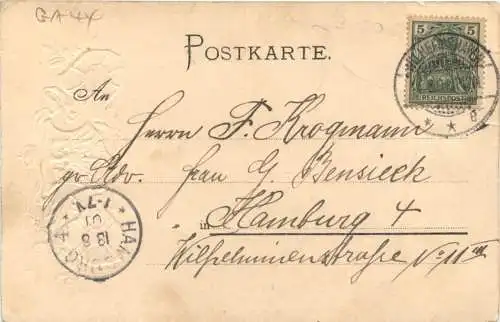 GA 4X
POSTKARTE.
5 5
REICHSPOST
An
Herrn F. Krogmann
pr Adr. Frau G. Bensieck
in Hamburg 4
Wilhelminenstrasse No 11
HAMBURG 4
13 8
01
1-7V